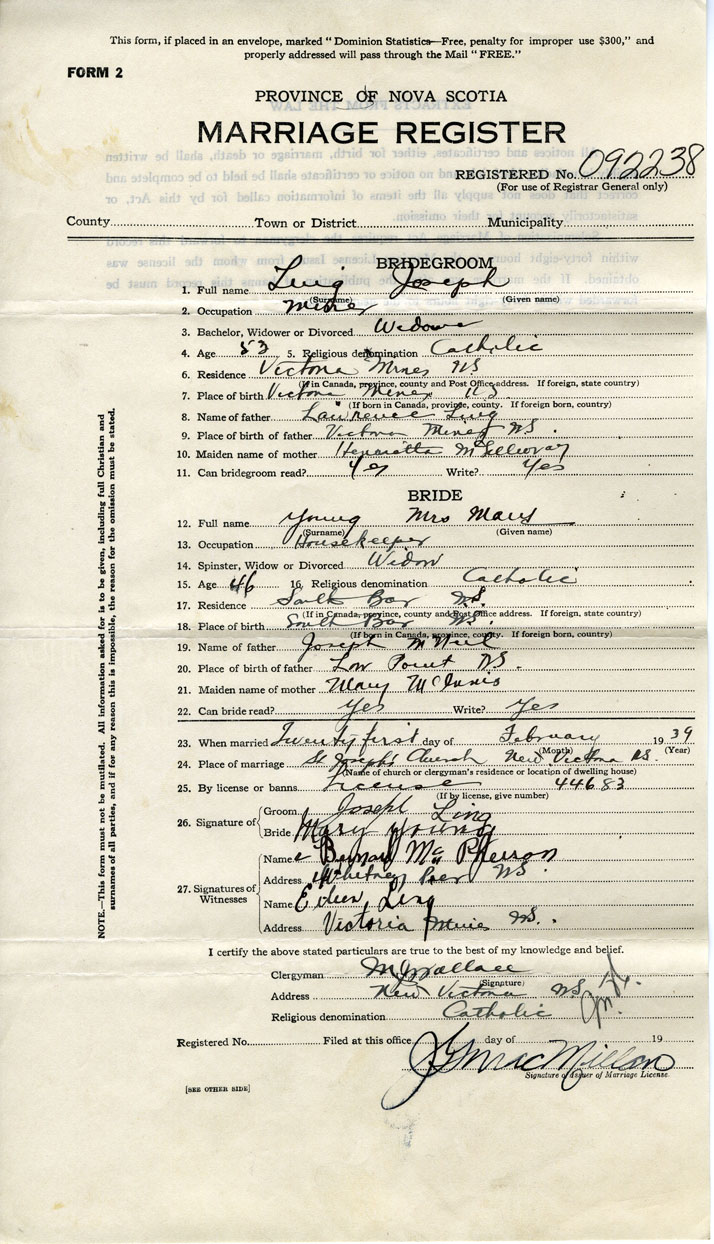 This form, if placed in an envelope, marked "Dominion Statistics—Free, penalty for improper use $300," and
properly addressed will pass through the Mail "FREE."
FORM 2
PROVINCE OF NOVA SCOTIA
MARRIAGE REGISTER
REGISTERED No. 092238
(For use of Registrar General only)
County Town or District Municipality
BRIDEGROOM
1. Full name Ling Joseph
(Surname) (Given name)
2. Occupation Miner
3. Bachelor, Widower or Divorced Widower
4. Age 53 5. Religious denomination Catholic
6. Residence Victoria Mines NS
(If in Canada, province, county and Post Office address. If foreign, state country)
7. Place of birth Victoria Mines N S
(If born in Canada, province, county. If foreign, state country)
8. Name of father Lawrence Ling
9. Place of birth of father Victoria Mines NS.
10. Maiden name of mother Henrietta McGillivray
11. Can bridegroom read? Yes Write? Yes
BRIDE
12. Full name Young Mrs Mary
(Surname) (Given name)
13. Occupation Housekeeper
14. Spinster, Widow or Divorced Widow
15. Age 46 16. Religious denomination Catholic
17. Residence South Bar NS.
(If in Canada, province, county and Post Office address. If foreign, state country)
18. Place of birth South Bar NS.
(If born in Canada, province, county. If foreign, state country)
19. Name of father Joseph McNeil
20. Place of birth of father Low Point NS.
21. Maiden name of mother Mary McInnis
22. Can bride read? Yes Write? Yes
23. When married Twenty first day of February 1939
(Month) (Year)
24. Place of marriage St Joseph's Church New Victoria NS.
(Name of church or clergyman's residence or location of dwelling house)
25. By license or banns License 44683
(If by license, give number)
26. Signature of Groom Joseph Ling
Bride Mary Young
27. Signatures of Witnesses
Name Bernard McPherson
Address Whitney Pier NS.
Name Eileen Ling
Address Victoria Mines NS.
I certify the above stated particulars are true to the best of my knowledge and belief.
Clergyman M J Wallace
(Signature)
Address New Victoria NS.
Religious denomination Catholic
Registered No. Filed at this office day of 19
J G MacMillan
Signature of Issuer of Marriage License.
[SEE OTHER SIDE]
NOTE.—This form must not be mutilated. All information asked for is to be given, including full Christian and
surnames of all parties, and if for any reason this is impossible, the reason for the omission must be stated.